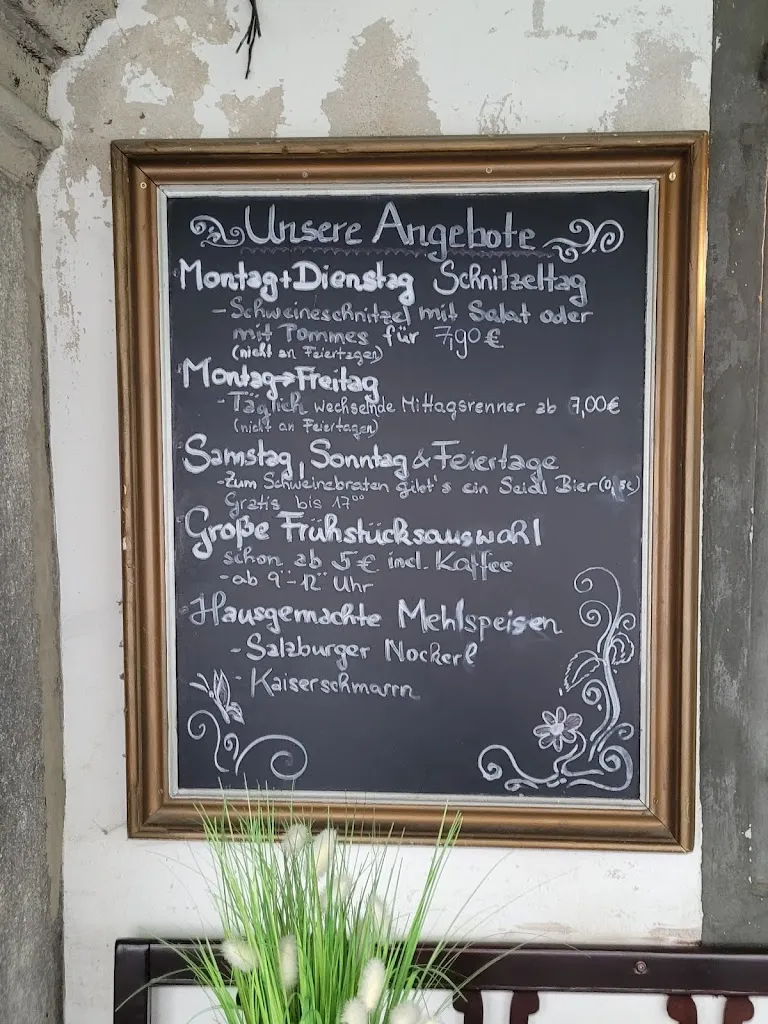 Unsere Angebote
Montag+Dienstag Schnitzeltag
- Schweineschnitzel mit Salat oder
mit Pommes für 7,90€
(nicht an Feiertagen)
Montag→Freitag
- Täglich wechselnde Mittagsrenner ab 7,00€
(nicht an Feiertagen)
Samstag, Sonntag & Feiertage
- Zum Schweinebraten gibt's ein Seidl Bier (0,3l)
Gratis bis 17⁰⁰
Große Frühstücksauswahl
schon ab 5€ incl. Kaffee
- ab 9⁰⁰-12⁰⁰ Uhr
Hausgemachte Mehlspeisen
- Salzburger Nockerl
- Kaiserschmarrn